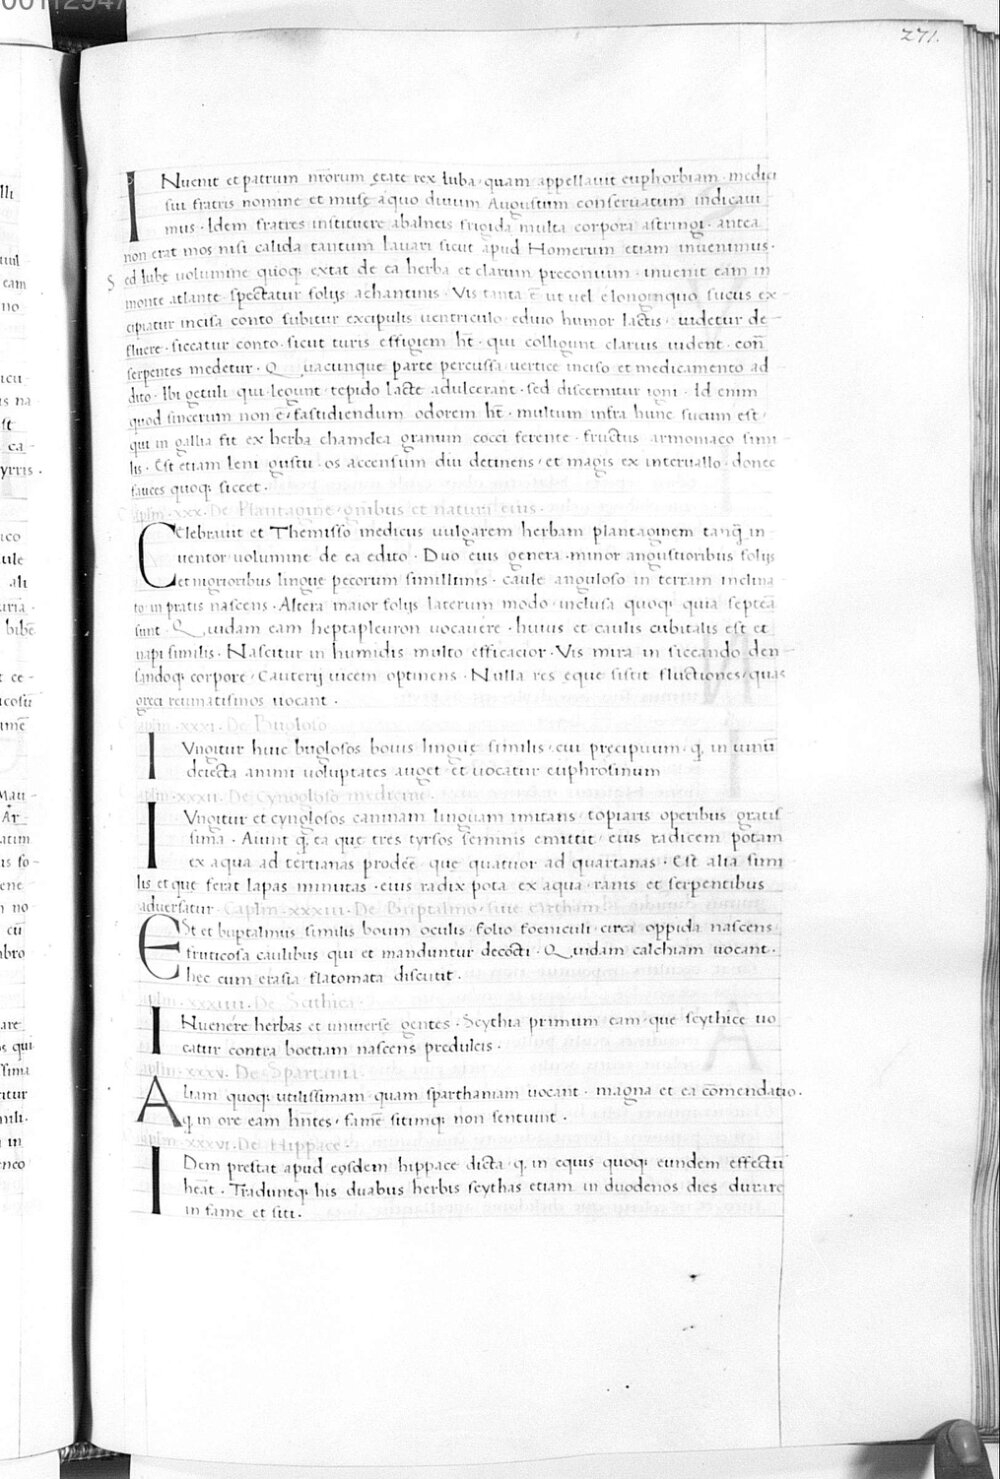 271.
INuenit et patrum nr̄orum ętate rex Iuba · quam appellauit euphorbiam · medici
sui fratris nomine et musę aquo diuum Augustum conseruatum indicaui
mus · Idem fratres instituere abalneis frigida multa corpora astringi · antea
non erat mos nisi calida tantum lauari sicut apud Homerum etiam inuenimus ·
Sed Iubę volumine quoq; extat de ea herba et clarum preconium · inuenit eam in
monte atlante · spectatur folijs achantinis · Vis tanta ē ut vel e longinquo sucus ex
cipiatur incisa conto subitur excipulis uentriculo · eduio humor lactis · uidetur de
fluere · siccatur conto · sicut turis effigiem ht̄ · qui colligunt clarius uident · con̄
serpentes medetur · Quacunque parte percussa · uertice inciso et medicamento ad
dito · Ibi getuli qui legunt · tepido lacte adulcerant · sed discernitur igni · Id enim
quod sincerum non ē · fastidiendum odorem ht̄ · multum infra hunc sucum est ·
qui in gallia fit ex herba chamelea granum cocci ferente · fructus armoniaco simi
lis · Est etiam leni gustu · os accensum diu detinens · et magis ex interuallo · donec
fauces quoq; siccet ·
Caplm · xxx · De Plantagine · gn̄ibus et naturi eius ·
Celebrauit et Themisso medicus uulgarem herbam plantaginem tanq̄ in
uentor uolumine de ea edito · Duo eius genera · minor angustioribus folijs
et nigrioribus linguę pecorum simillimis · caule anguloso in terram inclina
to · in pratis nascens · Altera maior folijs laterum modo · inclusa quoq; quia septēa
sunt · Quidam eam heptapleuron uocauere · huius et caulis cubitalis est et
napi similis · Nascitur in humidis multo efficacior · Vis mira in siccando den
sandoq; corpore · Cauterij uicem optinens · Nulla res ęque sistit fluctiones · quas
gręci reumatismos uocant ·
Caplm · xxxi · De Bugloso
IVngitur huic buglosos bouis linguę similis · cui precipuum · q; in uinū
deiecta animi uoluptates auget et uocatur euphrosinum
Caplm · xxxii · De Cynogloso medicine ·
IVngitur et cynglosos caninam linguam imitans · topiaris operibus gratis
sima · Aiunt q; ea que tres tyrsos seminis emittit · eius radicem potam
ex aqua ad tertianas prodeē · que quatuor ad quartanas · Est alia simi
lis et que ferat lapas minutas · eius radix pota ex aqua · ranis et serpentibus
aduersatur · Caplm · xxxiii · De Buptalmo · siue cartham ·
ESt et buptalmus similis boum oculis · folio foeniculi · circa oppida nascens
fruticosa caulibus qui et manduntur decocti · Quidam calchiam uocant ·
hec cum erasia flatomata discutit ·
Caplm · xxxiiii · De Scithica ·
INuenére herbas et uniuersę gentes · Scythia primum eam · que scythice uo
catur contra boetiam nascens predulcis ·
Caplm · xxxv · De Spartania ·
Aliam quoq; utilissimam quam sparthaniam uocant · magna et ea cōmendatio ·
q; in ore eam hn̄tes · famē sitimq; non sentiunt ·
Caplm · xxxvi · De Hippace ·
IDem prestat apud eosdem hippace dicta · q; in equis quoq; eundem effectū
heāt · Traduntq; his duabus herbis scythas etiam in duodenos dies durare
in fame et siti ·